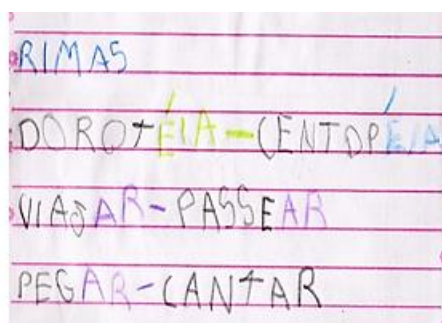 RIMAS
DOROTÉIA-CENTOPÉIA
VIAJAR-PASSEAR
PEGAR-CANTAR